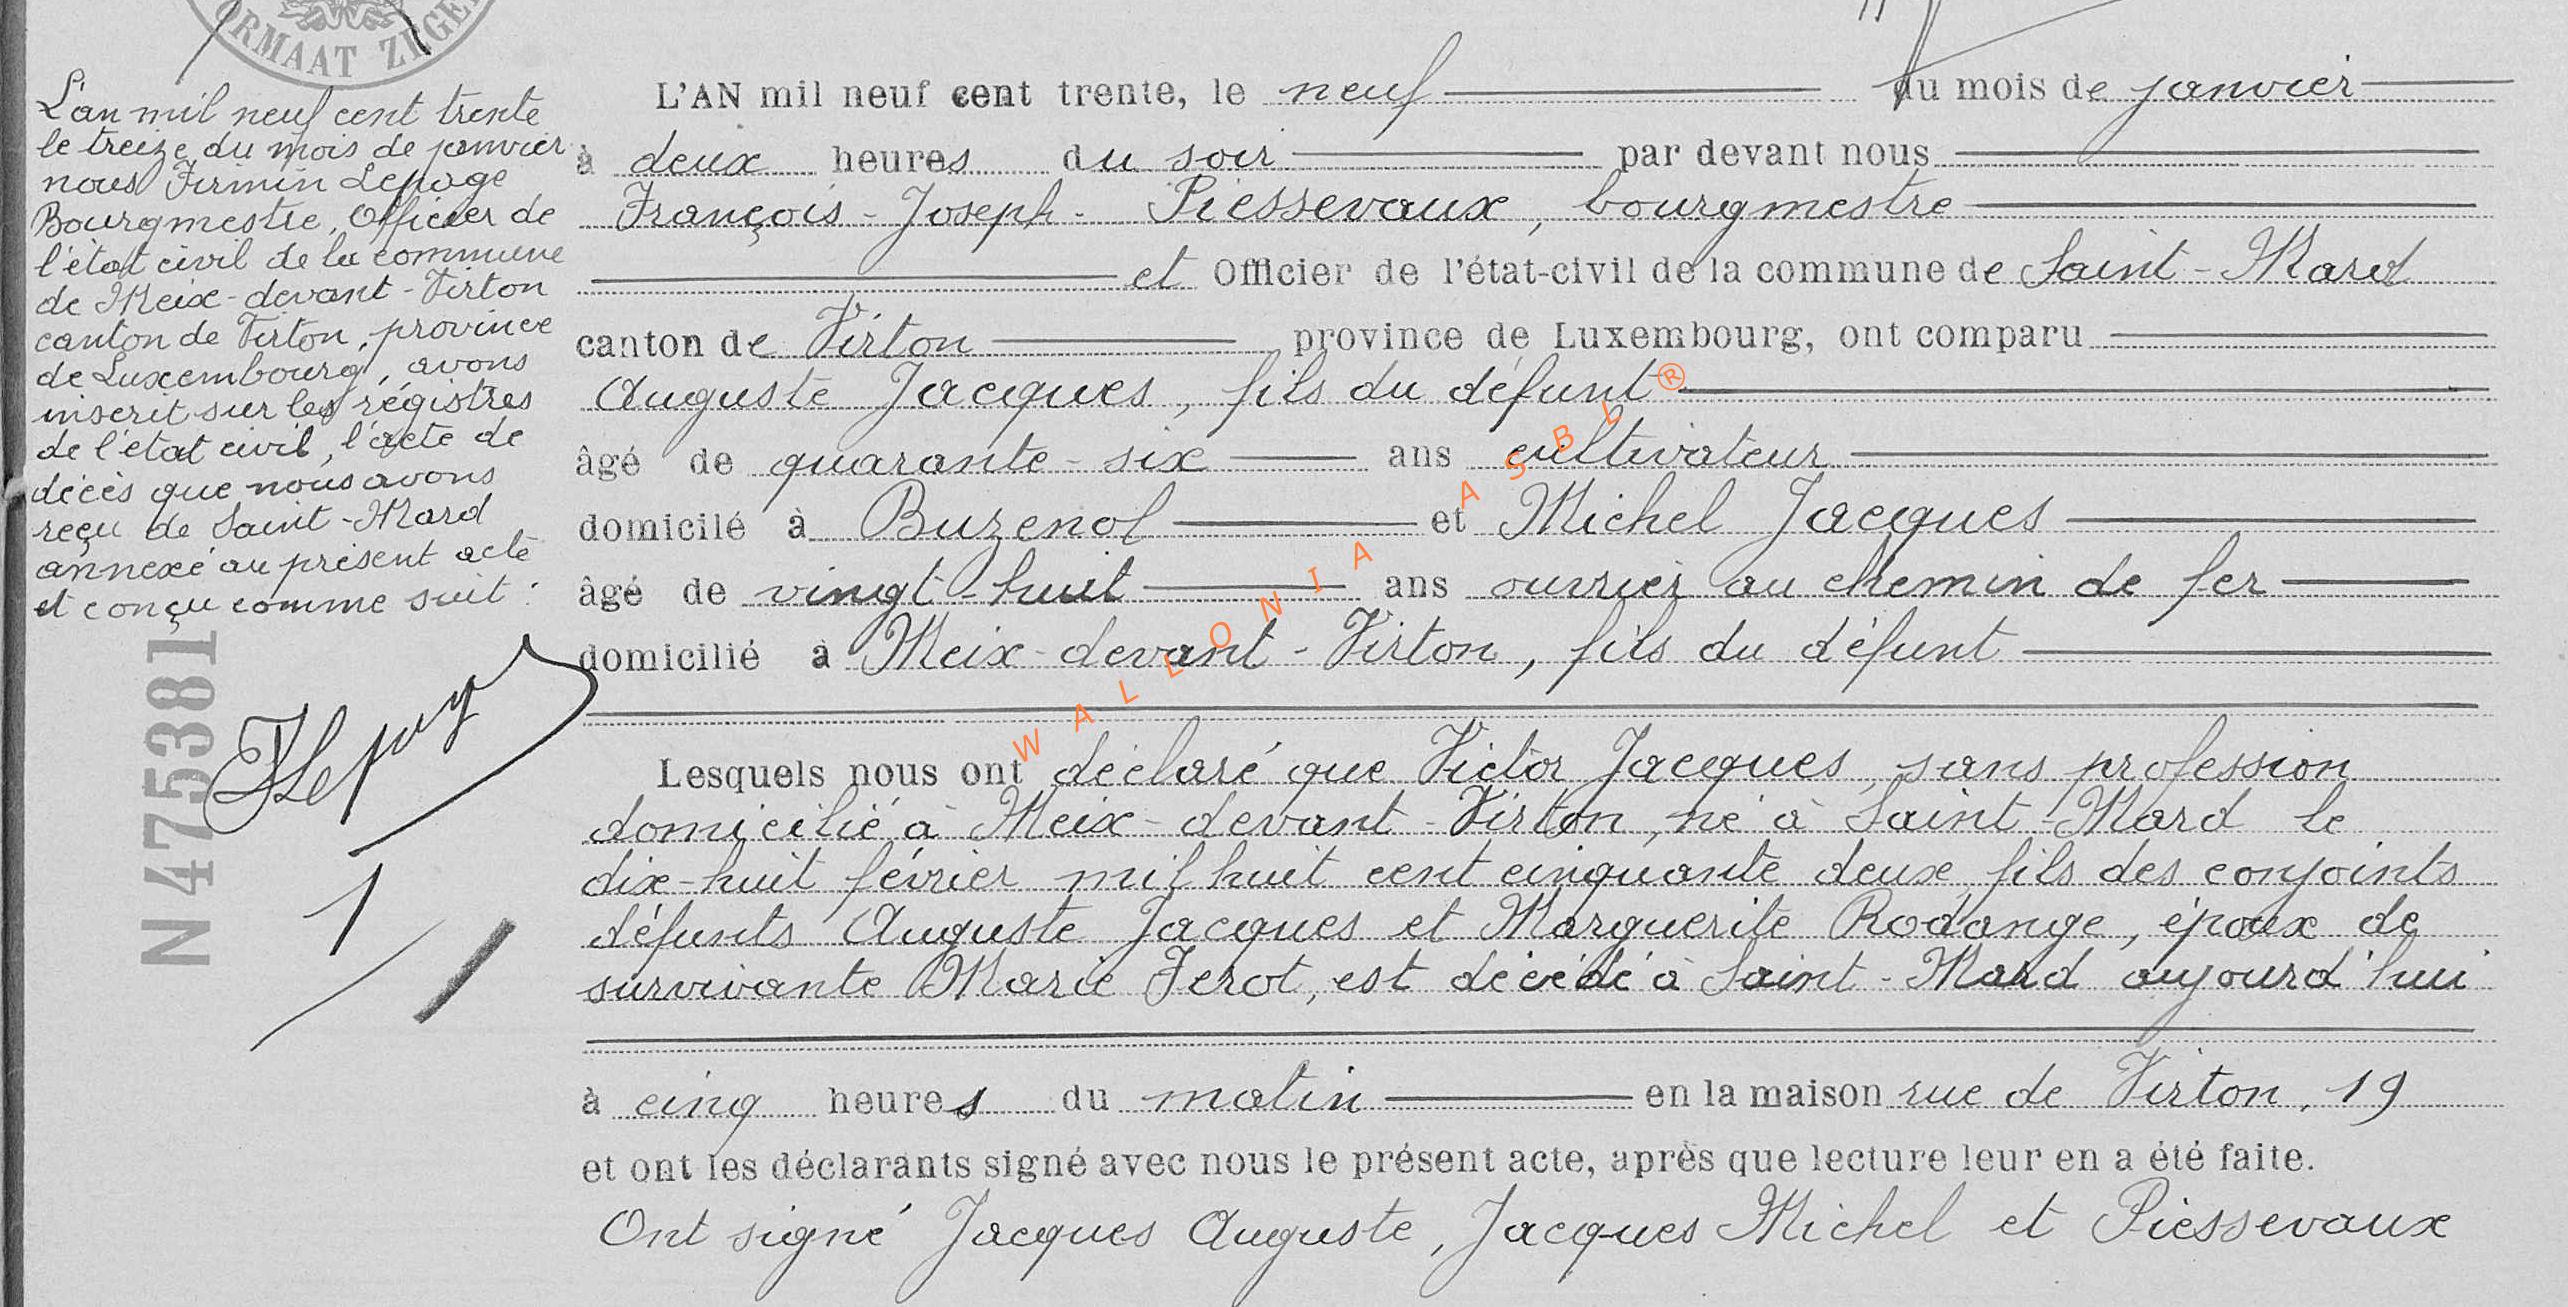 ORMAAT ZEGEL
L'an mil neuf cent trente
le treize du mois de janvier
nous Firmin Lepage
Bourgmestre, Officier de
l'état civil de la commune
de Meix-devant-Virton
canton de Virton, province
de Luxembourg, avons
inscrit sur les régistres
de l'état civil, l'acte de
décès que nous avons
reçu de Saint-Mard
annexé au présent acte
et conçu comme suit :
N 475381
L'AN mil neuf cent trente, le neuf du mois de janvier
à deux heures du soir par devant nous
François-Joseph- Piessevaux, bourgmestre
et Officier de l'état-civil de la commune de Saint-Mard
canton de Virton province de Luxembourg, ont comparu
Auguste Jacques, fils du défunt
âgé de quarante-six ans cultivateur
domicilé à Buzenol et Michel Jacques
âgé de vingt-huit ans ouvrier au chemin de fer
domicilié à Meix-devant-Virton, fils du défunt
Lesquels nous ont déclaré que Victor Jacques, sans profession
domicilié à Meix-devant-Virton, né à Saint-Mard le
dix-huit février mil huit cent cinquante deux, fils des conjoints
défunts Auguste Jacques et Marguerite Rodange, époux de
survivante Marie Jerot, est décédé à Saint-Mard aujourd'hui
à cinq heures du matin en la maison rue de Virton, 19
et ont les déclarants signé avec nous le présent acte, après que lecture leur en a été faite.
Ont signé Jacques Auguste, Jacques Michel et Piessevaux
WALLONIA ASBL ®